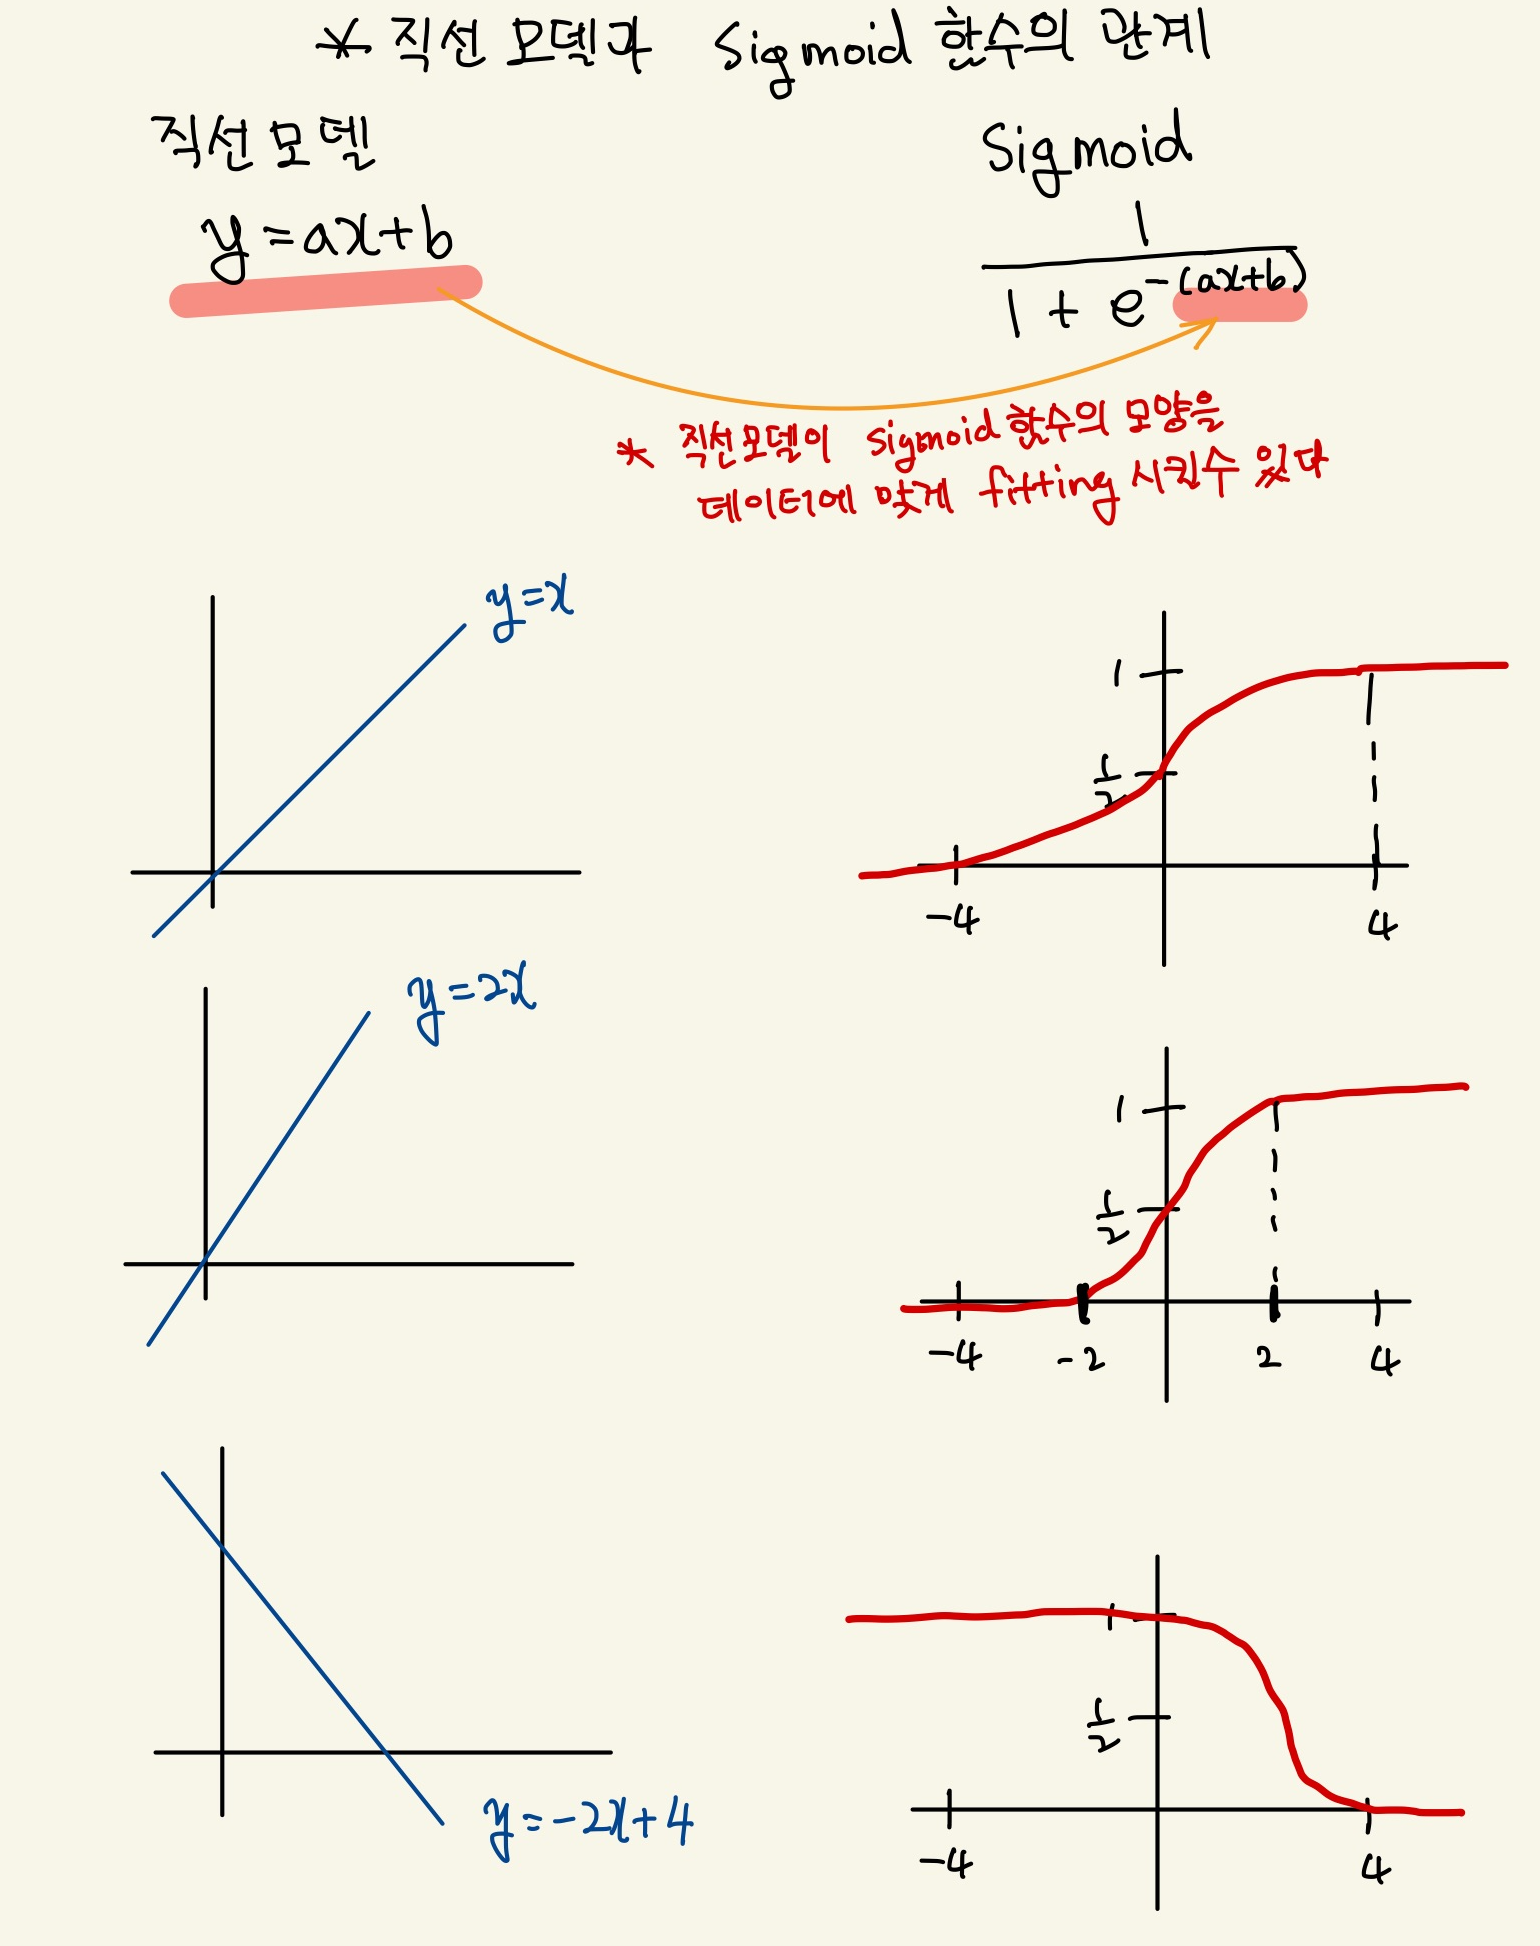 * 직선 모델과 Sigmoid 함수의 관계
직선 모델
Sigmoid
y = ax+b
1
1 + e^-(ax+b)
* 직선모델이 sigmoid 함수의 모양을
데이터에 맞게 fitting 시킬수 있다
y=x
1
1/2
-4
4
y=2x
1
1/2
-4 -2 2 4
1
1/2
y=-2x+4
-4 4